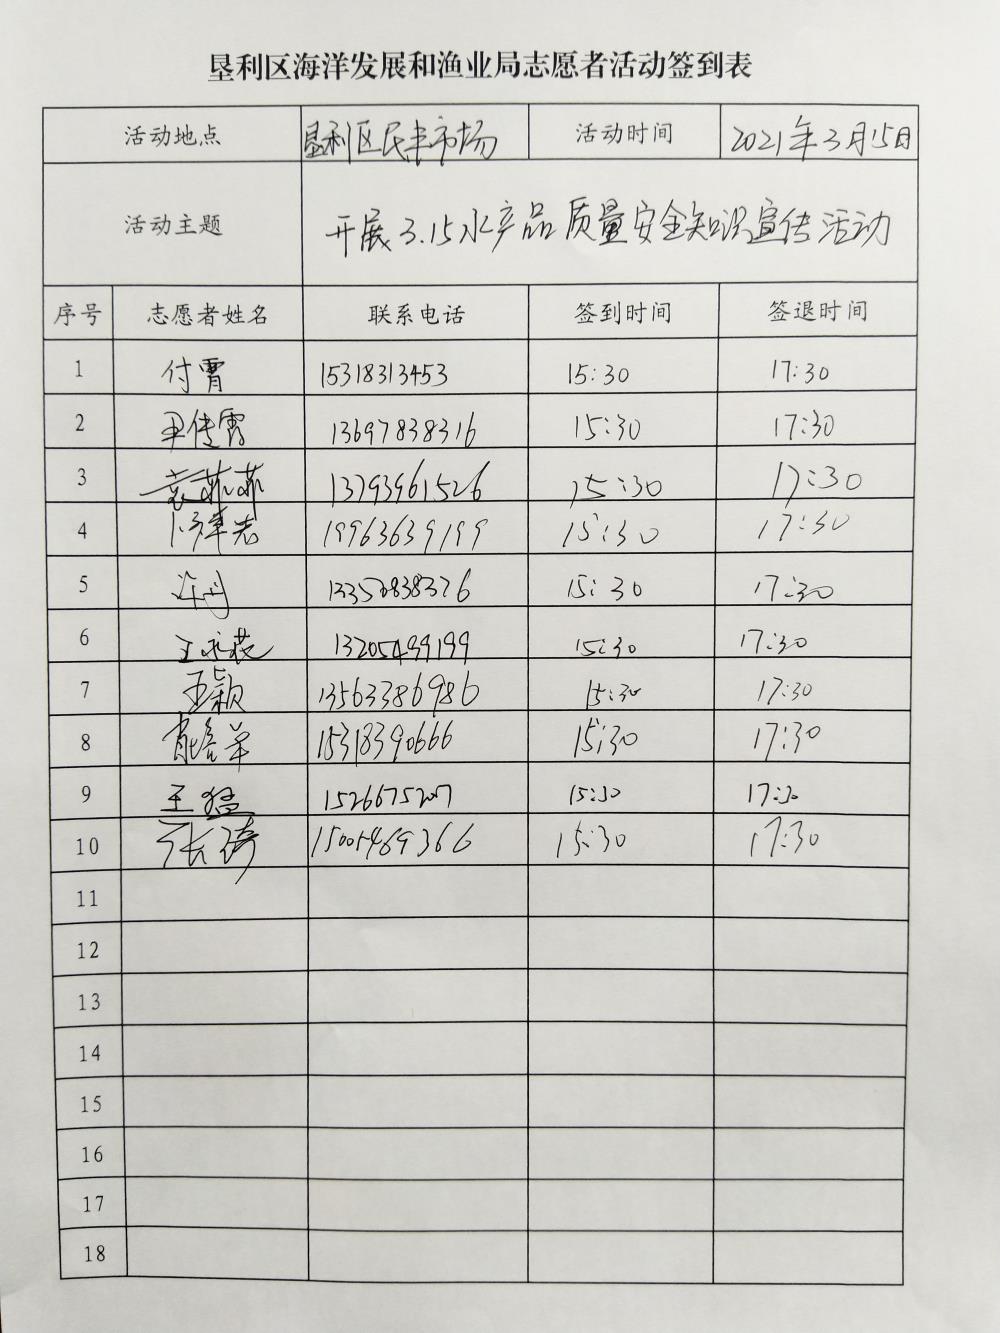 垦利区海洋发展和渔业局志愿者活动签到表
活动地点 垦利区民丰市场 活动时间 2021年3月15日
活动主题 开展3.15水产品质量安全知识宣传活动
序号 志愿者姓名 联系电话 签到时间 签退时间
1 付霄 15318313453 15:30 17:30
2 尹传霞 13697838316 15:30 17:30
3 袁菲菲 13793961526 15:30 17:30
4 19963639199 15:30 17:30
5 许丹 15:30 17:30
6 13205499199 15:30 17:30
7 王颖 13563386986 15:30 17:30
8 15318390666 15:30 17:30
9 王猛 15266752207 15:30 17:30
10 张琦 15005469366 15:30 17:30
11
12
13
14
15
16
17
18